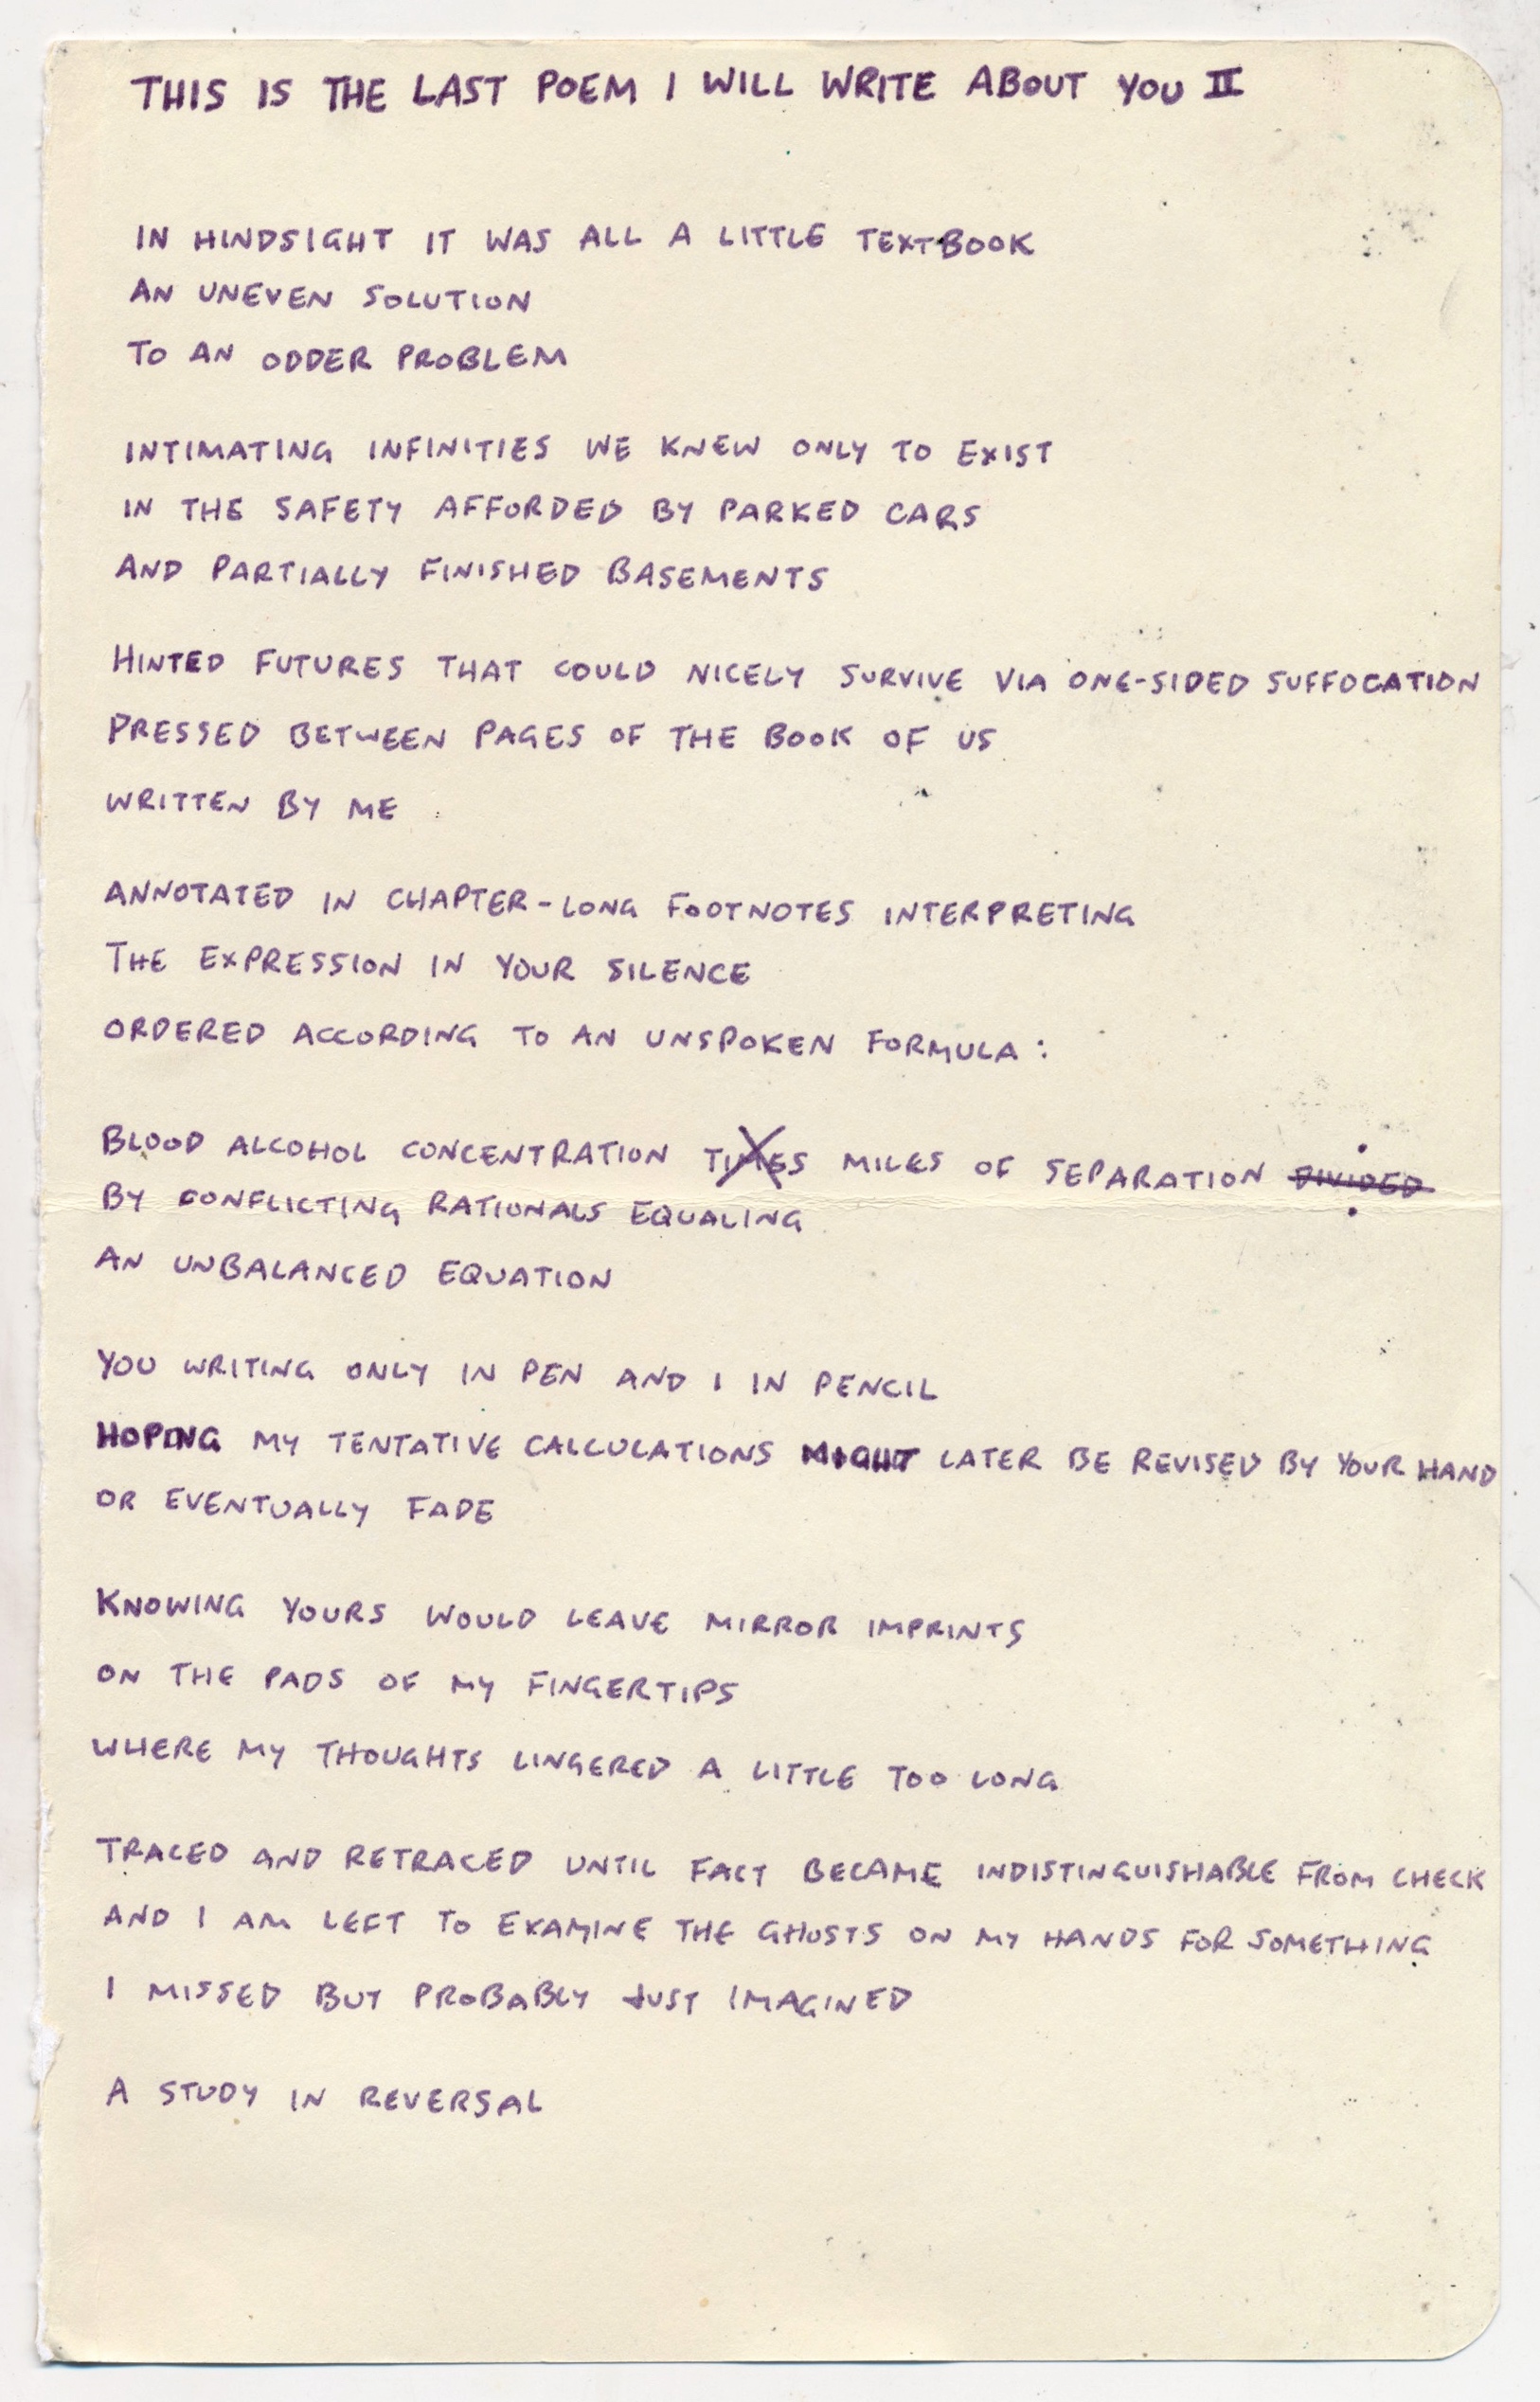 THIS IS THE LAST POEM I WILL WRITE ABOUT YOU II
IN HINDSIGHT IT WAS ALL A LITTLE TEXTBOOK
AN UNEVEN SOLUTION
TO AN ODDER PROBLEM
INTIMATING INFINITIES WE KNEW ONLY TO EXIST
IN THE SAFETY AFFORDED BY PARKED CARS
AND PARTIALLY FINISHED BASEMENTS
HINTED FUTURES THAT COULD NICELY SURVIVE VIA ONE-SIDED SUFFOCATION
PRESSED BETWEEN PAGES OF THE BOOK OF US
WRITTEN BY ME
ANNOTATED IN CHAPTER-LONG FOOTNOTES INTERPRETING
THE EXPRESSION IN YOUR SILENCE
ORDERED ACCORDING TO AN UNSPOKEN FORMULA:
BLOOD ALCOHOL CONCENTRATION TIMES MILES OF SEPARATION DIVIDED
BY CONFLICTING RATIONALS EQUALING
AN UNBALANCED EQUATION
YOU WRITING ONLY IN PEN AND I IN PENCIL
HOPING MY TENTATIVE CALCULATIONS MIGHT LATER BE REVISED BY YOUR HAND
OR EVENTUALLY FADE
KNOWING YOURS WOULD LEAVE MIRROR IMPRINTS
ON THE PADS OF MY FINGERTIPS
WHERE MY THOUGHTS LINGERED A LITTLE TOO LONG
TRACED AND RETRACED UNTIL FACT BECAME INDISTINGUISHABLE FROM CHECK
AND I AM LEFT TO EXAMINE THE GHOSTS ON MY HANDS FOR SOMETHING
I MISSED BUT PROBABLY JUST IMAGINED
A STUDY IN REVERSAL